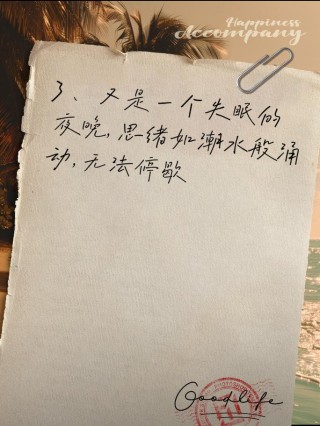 Happiness
Accompany
3、又是一个失眠的
夜晚,思绪如潮水般涌
动,无法停歇
Goodlife